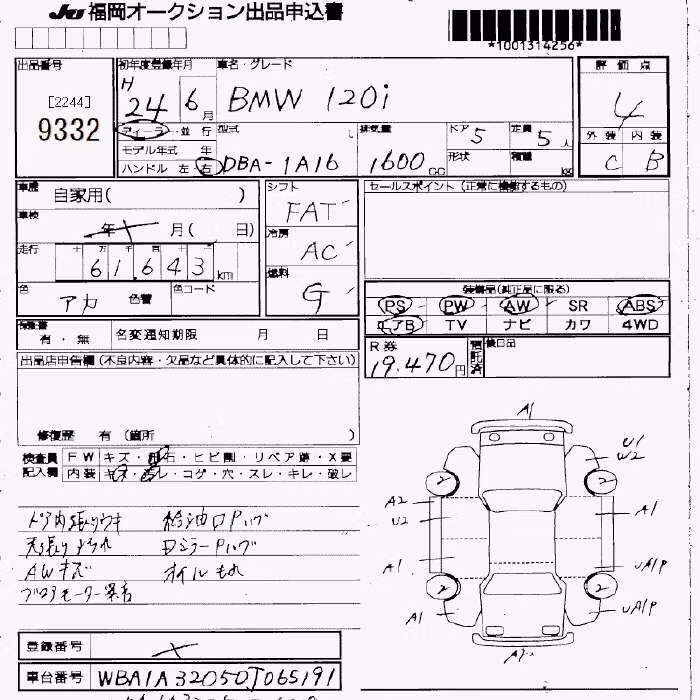 JU 福岡オークション出品申込書
*1001314256*
出品番号 初年度登録年月 車名・グレード 評価点
[2244]
9332
H 24 6月 BMW 120i 4
ディーラ・並行 型式 排気量 ドア 5 定員 5人 外装 内装
モデル年式 年 形状 積載 kg
ハンドル 左 右 DBA-1A16 1600cc C B
車歴 自家用( ) シフト FAT セールスポイント (正常に機能するもの)
車検 年 月( 日) 冷房 AC
走行 十 万 千 百 十 61,643 km 燃料 G
色 アカ 色替 色コード
装備品(純正品に限る)
PS PW AW SR ABS
エアB TV ナビ カワ 4WD
保証書 有・無 名変通知期限 月 日
R券 19,470円 預託済 後日品
出品店申告欄(不良内容・欠品など具体的に記入して下さい)
修復歴 有 (箇所 )
検査員 FW キズ・飛石・ヒビ割・リペア跡・X要
記入欄 内装 キズ・汚レ・コゲ・穴・スレ・キレ・破レ
ドア内張りウキ 給油口Pハゲ
天張りよごれ Dミラーハゲ
AWキズ オイルもれ
ブロアモーター異音
A1
U1
W2
2 2
A2
U2
A1
A1 UA1P
2 2
A1 UA1P
登録番号 X
車台番号 WBA1A32050J065191